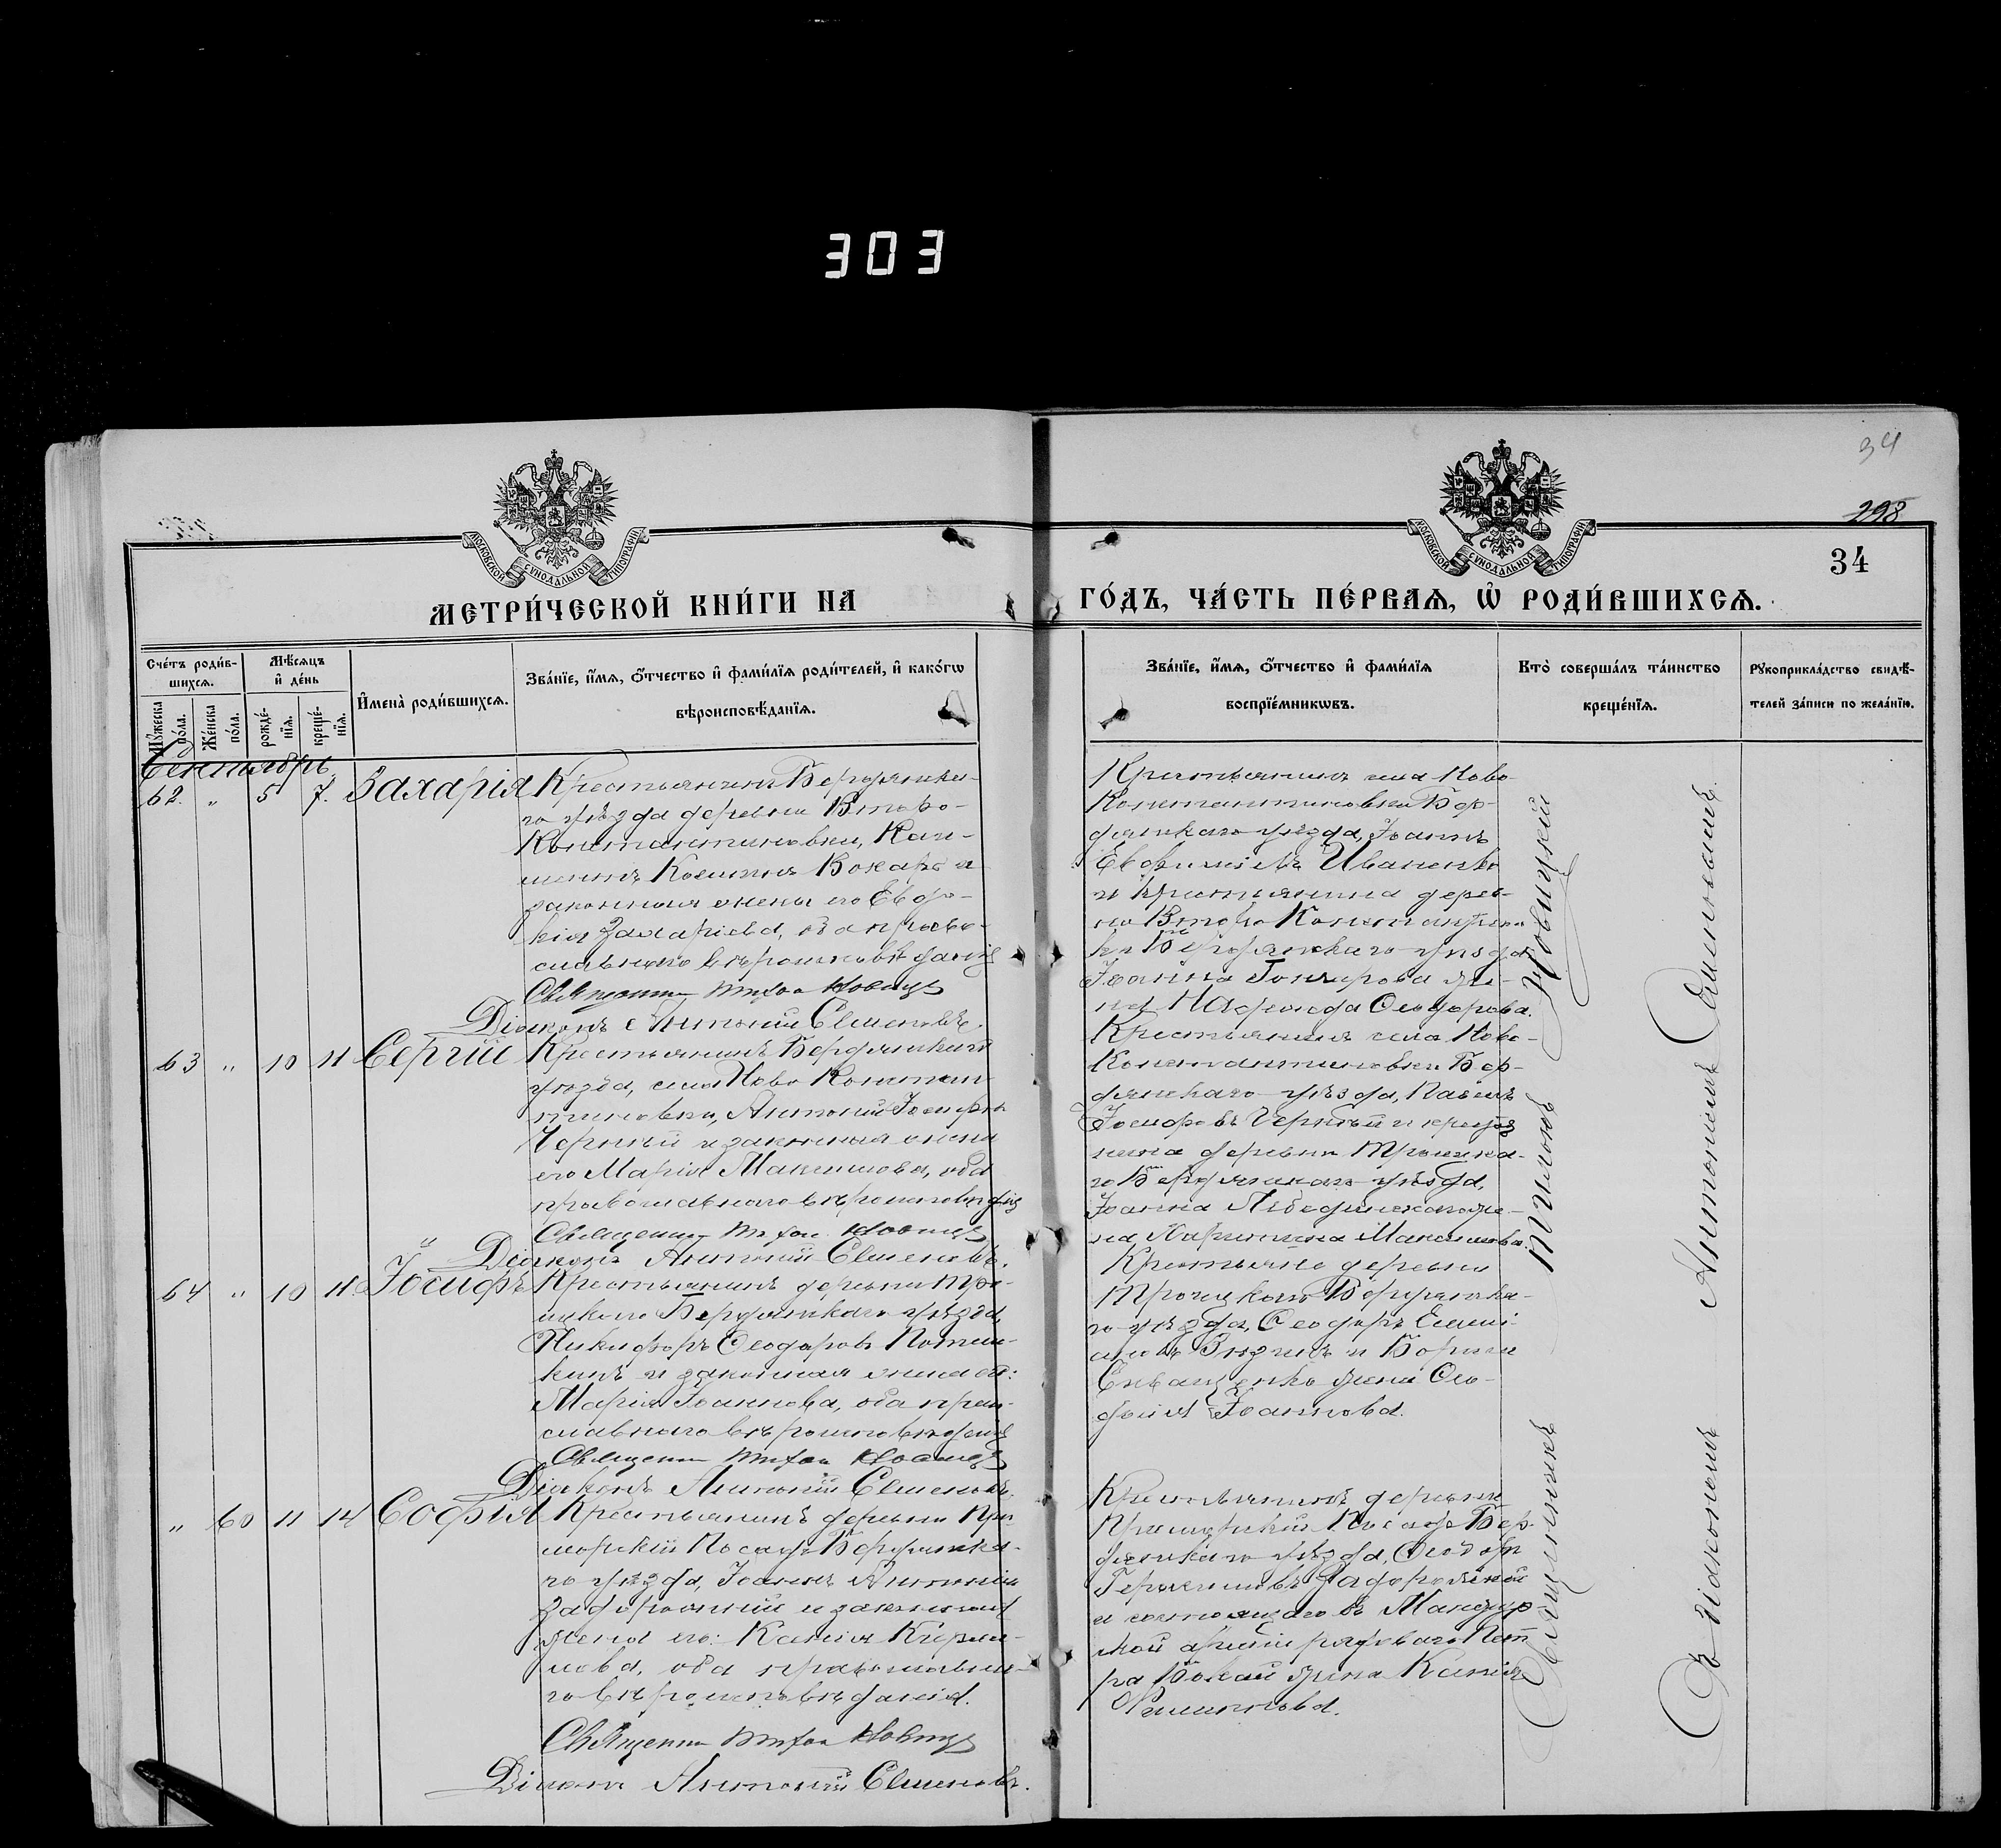 303
34
298
34
МОСКОВСКОЙ СѴНОДАЛЬНОЙ ТИПОГРАФІИ
МОСКОВСКОЙ СѴНОДАЛЬНОЙ ТИПОГРАФІИ
МЕТРИ́ЧЕСКОЙ КНИ́ГИ НА
ГО́ДЪ, ЧА́СТЬ ПЕ́РВАѦ, Ѡ҆ РОДИ́ВШИХСѦ.
Сче́тъ роди́в-
шихсѧ.
Мꙋ́жеска
по́ла.
Же́нска
по́ла.
Мѣ́сѧцъ
и҆ де́нь
рожде́-
нїѧ.
креще́-
нїѧ.
И҆мена̀ роди́вшихсѧ.
Зва́нїе, и҆́мѧ, ѻ҆́тчество и҆ фами́лїѧ роди́телей, и҆ како́гѡ
вѣроисповѣ́данїѧ.
Зва́нїе, и҆́мѧ, ѻ҆́тчество и҆ фами́лїѧ
воспрїе́мникѡвъ.
Кто̀ соверша́лъ та́инство
креще́нїѧ.
Рꙋкоприкла́дство свидѣ́-
телей за́писи по жела́нїю.
Сентябрь
62. " 5 7. Захарія
Крестьянинъ Бердянска-
го уѣзда деревни Второ-
Константиновки,
Косминъ и
законная жена его Евдо-
кія Захаріева, оба право-
славнаго вѣроисповѣданія
Священникъ Тихон Новицк
Діаконъ Антоній Семеновъ.
Крестьянинъ села Ново-
Константиновки Бер-
дянскаго уѣзда, Іоаннъ
Евфиміевъ Иваненко
и крестьянина дерев-
ни Второ Константинов
ки Бердянскаго уѣзда
Іоанна Гончарова же-
на Ѳеодорова.
63 " 10 11 Сергій
Крестьянинъ Бердянскаго
уѣзда, села Ново Констан-
тиновки, Антоній Іосифовъ
Черный и законная жена
его Марія Максимова, оба
православнаго вѣроисповѣданія
Священник Тихон Новицк
Діаконъ Антоній Семеновъ.
Крестьянинъ села Ново-
Константиновки Бер-
дянскаго уѣзда, Павелъ
Іосифовъ Черный и крестья
нина деревни Троицка-
го Бердянскаго уѣзда,
Іоанна Лебединскаго же-
на Максимова.
64 " 10 11. Іосифъ
Крестьянинъ деревни Тро-
ицкаго Бердянскаго уѣзда,
Никифоръ Ѳеодоровъ
и законная жена его:
Марія Іоаннова, оба право-
славнаго вѣроисповѣданія
Священник Тихон Новицк
Діаконъ Антоній Семеновъ.
Крестьяне деревни
Троицкаго Бердянска-
го уѣзда, Ѳеодоръ
и
жена Ѳео-
досія Іоаннова.
" 60 11 14 Софія
Крестьянинъ деревни При-
морскій Посадъ Бердянска-
го уѣзда, Іоаннъ Антоніевъ
Задорожній и законная
жена его: Ксенія
оба православна-
го вѣроисповѣданія.
Священник Тихон Новицк
Діаконъ Антоній Семеновъ.
Крестьянинъ деревни
Приморскій Посадъ Бер-
дянскаго уѣзда, Ѳеодоръ
Герасимовъ Задорожній
и состоящаго въ Манджур-
ской арміи рядоваго Пет-
ра жена Ксенія
Священникъ Тихонъ Новицкій
Съ діакономъ Антоніемъ Семеновымъ.